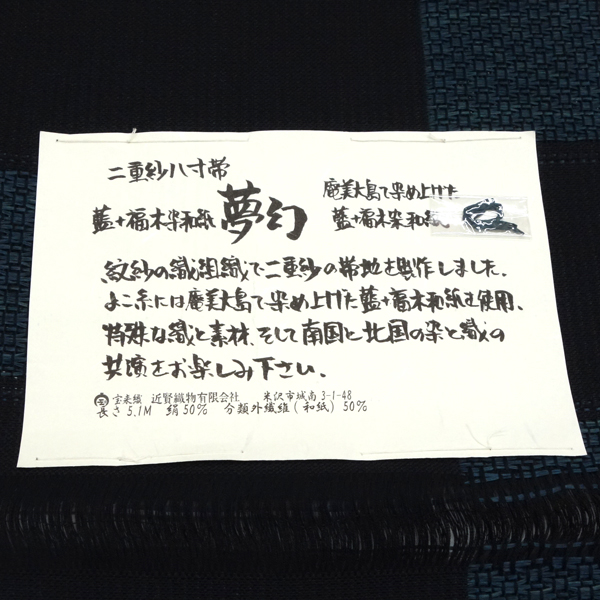 二重紗八寸帯
藍+福木染和紙
夢幻
奄美大島で染め上げた
藍+福木染和紙
紋紗の織組織で二重紗の帯地を製作しました。
よこ糸には奄美大島で染め上げた藍+福木和紙を使用、
特殊な織と素材、そして南国と北国の染と織の
共演をお楽しみ下さい。
宝来織 近賢織物有限会社 米沢市城南3-1-48
長さ5.1M 絹50% 分類外繊維(和紙)50%